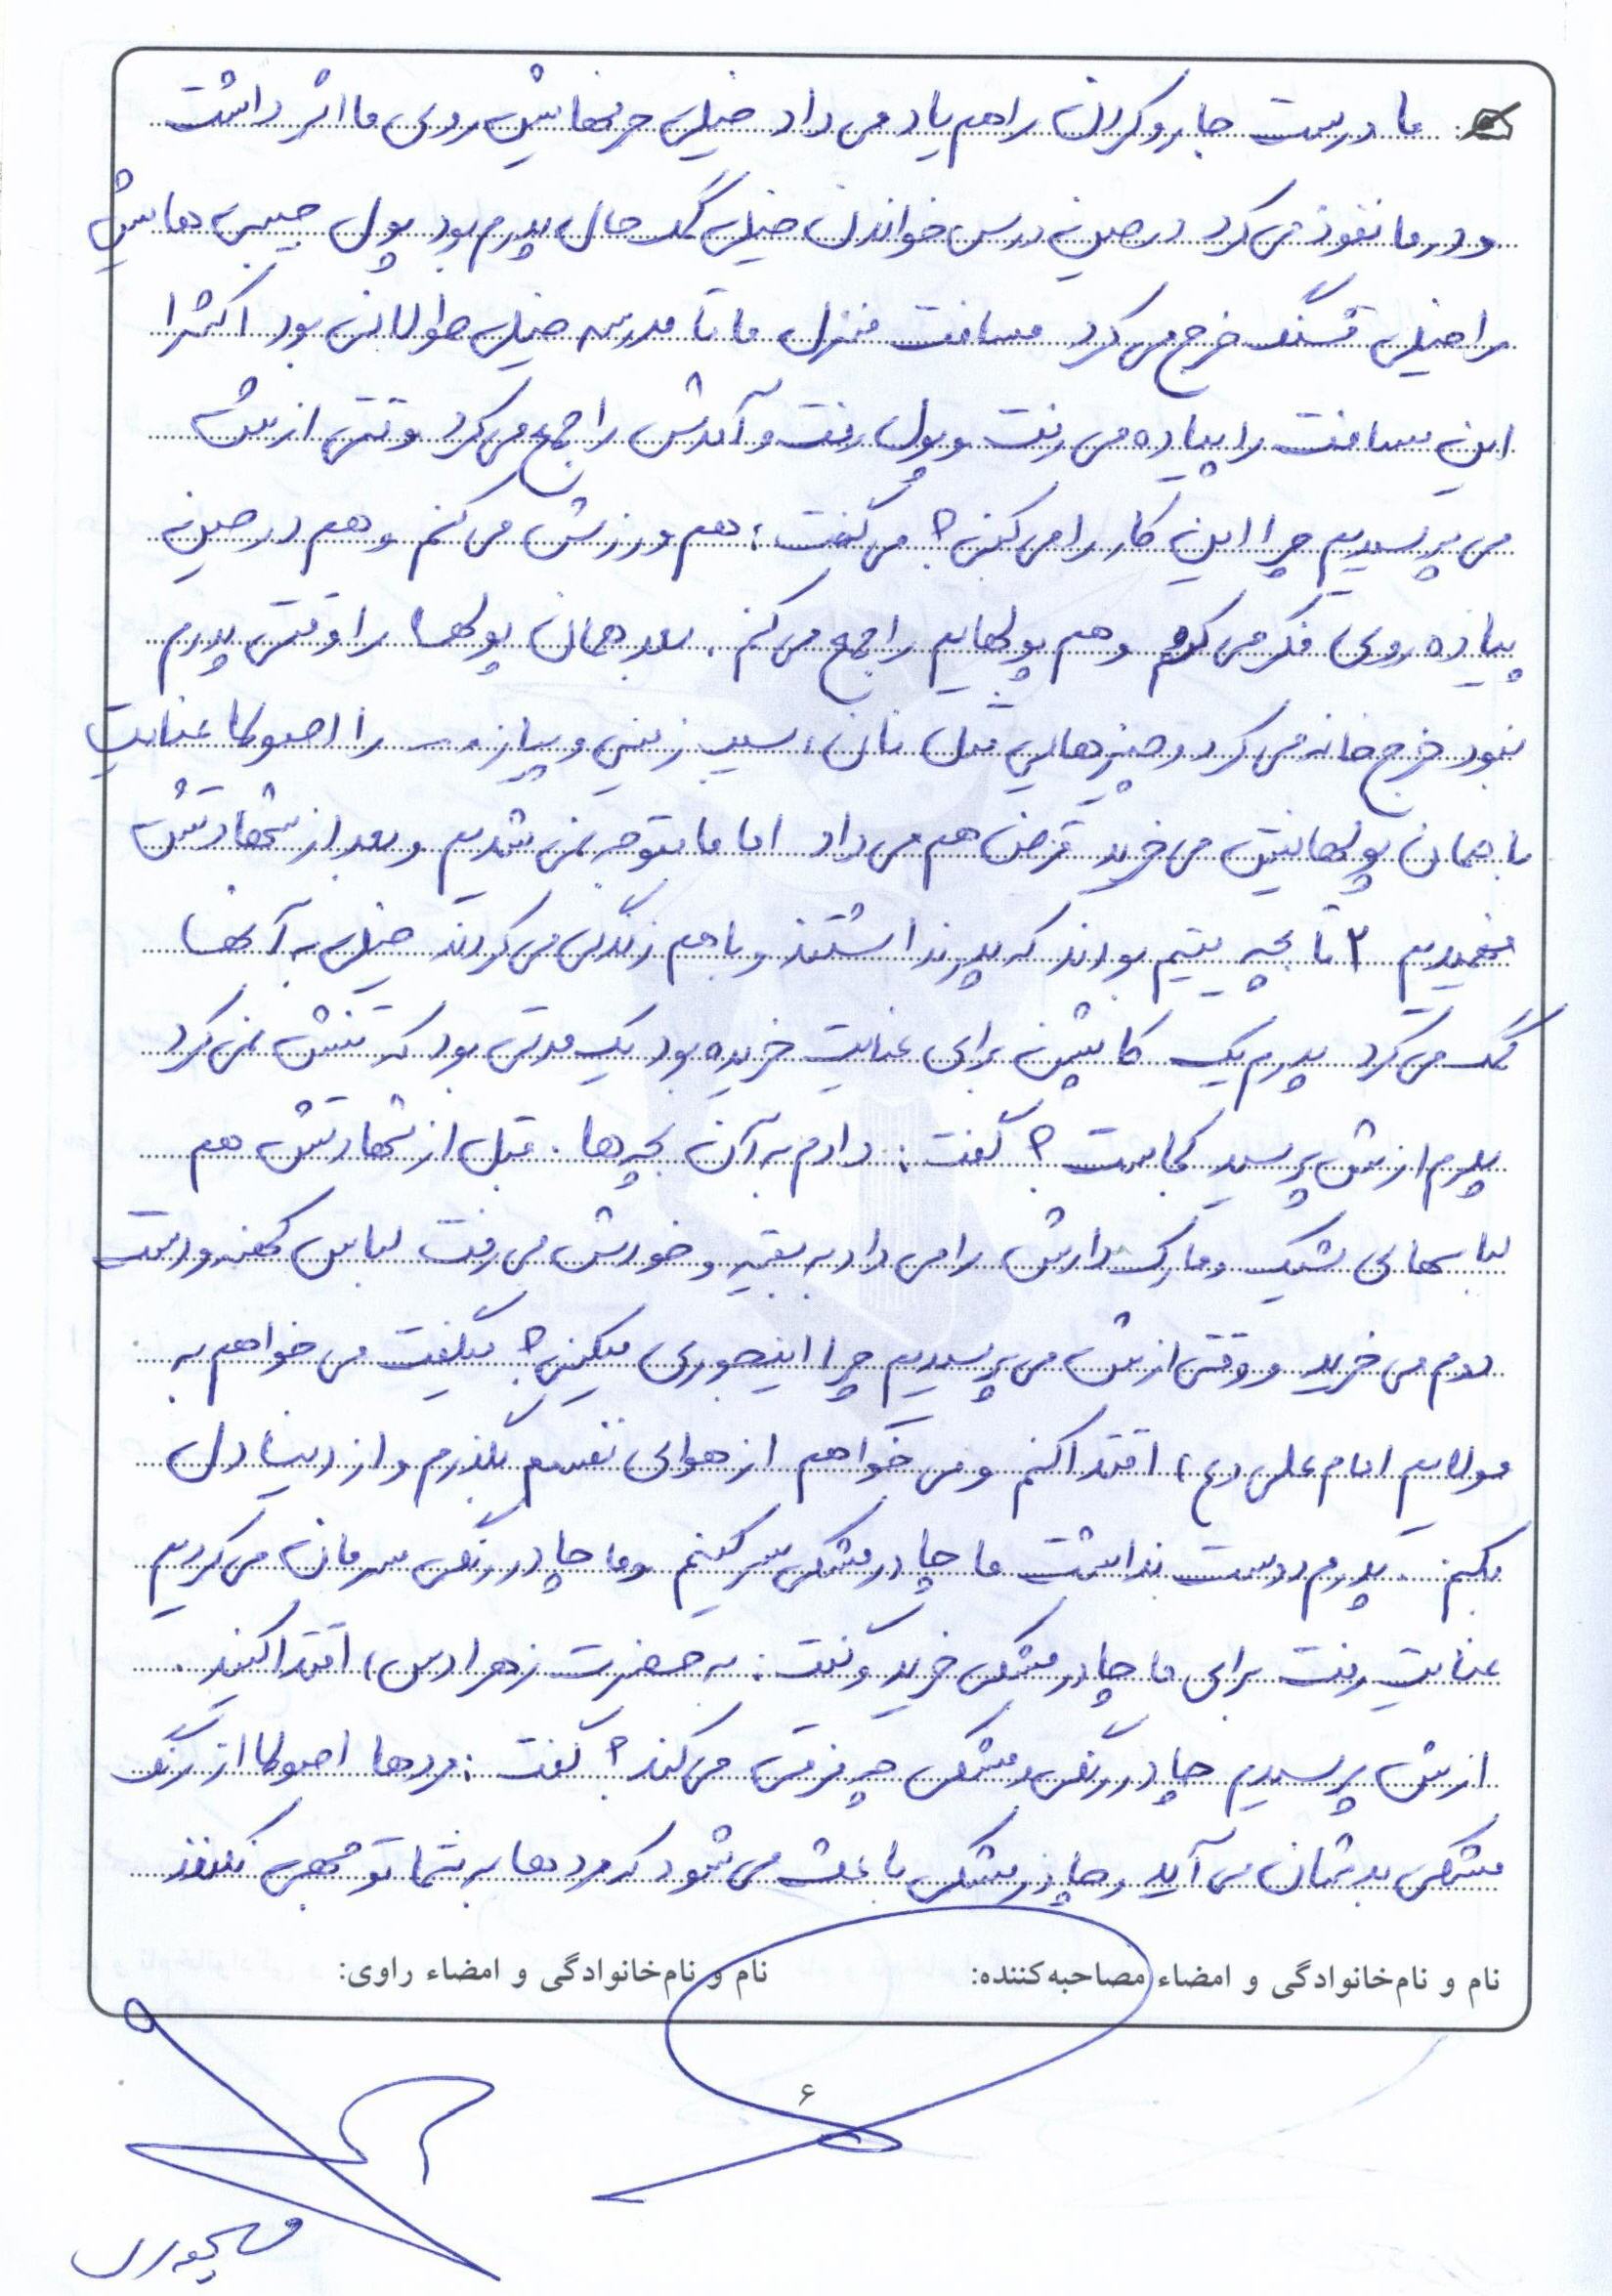 ما درست جارو کردن را هم یاد می داد خیلی حرفهایش روی ما اثر داشت
و در ما نفوذ می کرد در حین درس خواندن خیلی کمک حال پدرم بود پول جیبی هایش
را خیلی قشنگ خرج می کرد مسافت منزل ما تا مدرسه خیلی طولانی بود اکثرا
این مسافت را پیاده می رفت و پول رفت و آمدش را جمع می کرد وقتی ازش
می پرسیدیم چرا این کار را می کنی؟ می گفت: هم ورزش می کنم و هم در حین
پیاده روی فکر می کنم و هم پولهایم را جمع می کنم. بعد همان پولها را وقتی پدرم
نبود خرج خانه می کرد و چیزهایی مثل نان، سیب زمینی و پیاز و... را اصولا عنایت
با همان پولهایش می خرید قرض هم می داد اما ما متوجه نمی شدیم و بعد از شهادتش
فهمیدیم ۲ تا بچه یتیم بودند که پدر نداشتند و با هم زندگی می کردند خیلی به آنها
کمک می کرد پدرم یک کاپشن برای عنایت خریده بود یک مدتی بود که تنش نمی کرد
پدرم ازش پرسید کجاست؟ گفت: دادم به آن بچه ها. قبل از شهادتش هم
لباسهای شیک و مارک دارش را می داد به بقیه و خودش می رفت لباس کهنه و دست
دوم می خرید و وقتی ازش می پرسیدیم چرا اینجوری میکنی؟ میگفت می خواهم به
مولایم امام علی (ع) اقتدا کنم و می خواهم از هوای نفسم بگذرم و از دنیا دل
بکنم. پدرم دوست نداشت ما چادر مشکی سر کنیم و ما چادر رنگی سرمان می کردیم
عنایت رفت برای ما چادر مشکی خرید و گفت: به حضرت زهرا (س) اقتدا کنید.
ازش پرسیدیم چادر رنگی و مشکی چه فرقی می کند؟ گفت: مردها اصولا از رنگ
مشکی بدشان می آید و چادر مشکی باعث می شود که مردها به شما توجهی نکنند
نام و نام‌خانوادگی و امضاء مصاحبه‌کننده:
نام و نام‌خانوادگی و امضاء راوی:
۶